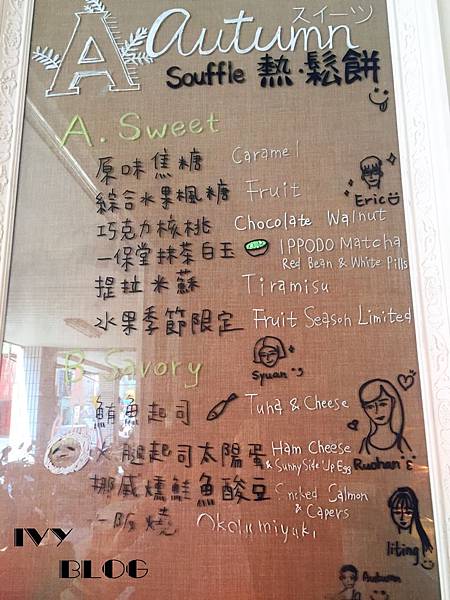 A autumn スイーツ
Souffle 熱·鬆餅
A. Sweet
原味焦糖 Caramel
Eric
綜合水果楓糖 Fruit
巧克力核桃 Chocolate Walnut
一保堂抹茶白玉 IPPODO Matcha
Red Bean & White Pills
提拉米蘇 Tiramisu
水果季節限定 Fruit Season Limited
Syuan
B Savory
鮪魚起司 Tuna & Cheese
火腿起司太陽蛋 Ham Cheese
& Sunny Side Up Egg
Ruohan
挪威燻鮭魚酸豆 Smoked Salmon
& Capers
燒 Okonomiyaki
liting
Autumn
IVY
BLOG